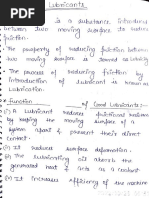 Lubricants
is a substance introduce
between two moving surface to reduce
friction.
The property of reducing friction between
two moving surface is termed as
The process of reducing friction by
introduction of lubricant is known as
lubrication.
Function of Good Lubricants:-
(1) A Lubricant reduces frictional
by keeping the moving surface of a
system apart & prevent their direct
contact.
(2) It reduces surface deformation.
(3) The lubricating oil absorb the
generated heat & cools the contact
part.
(4) It increases efficiency of the machine